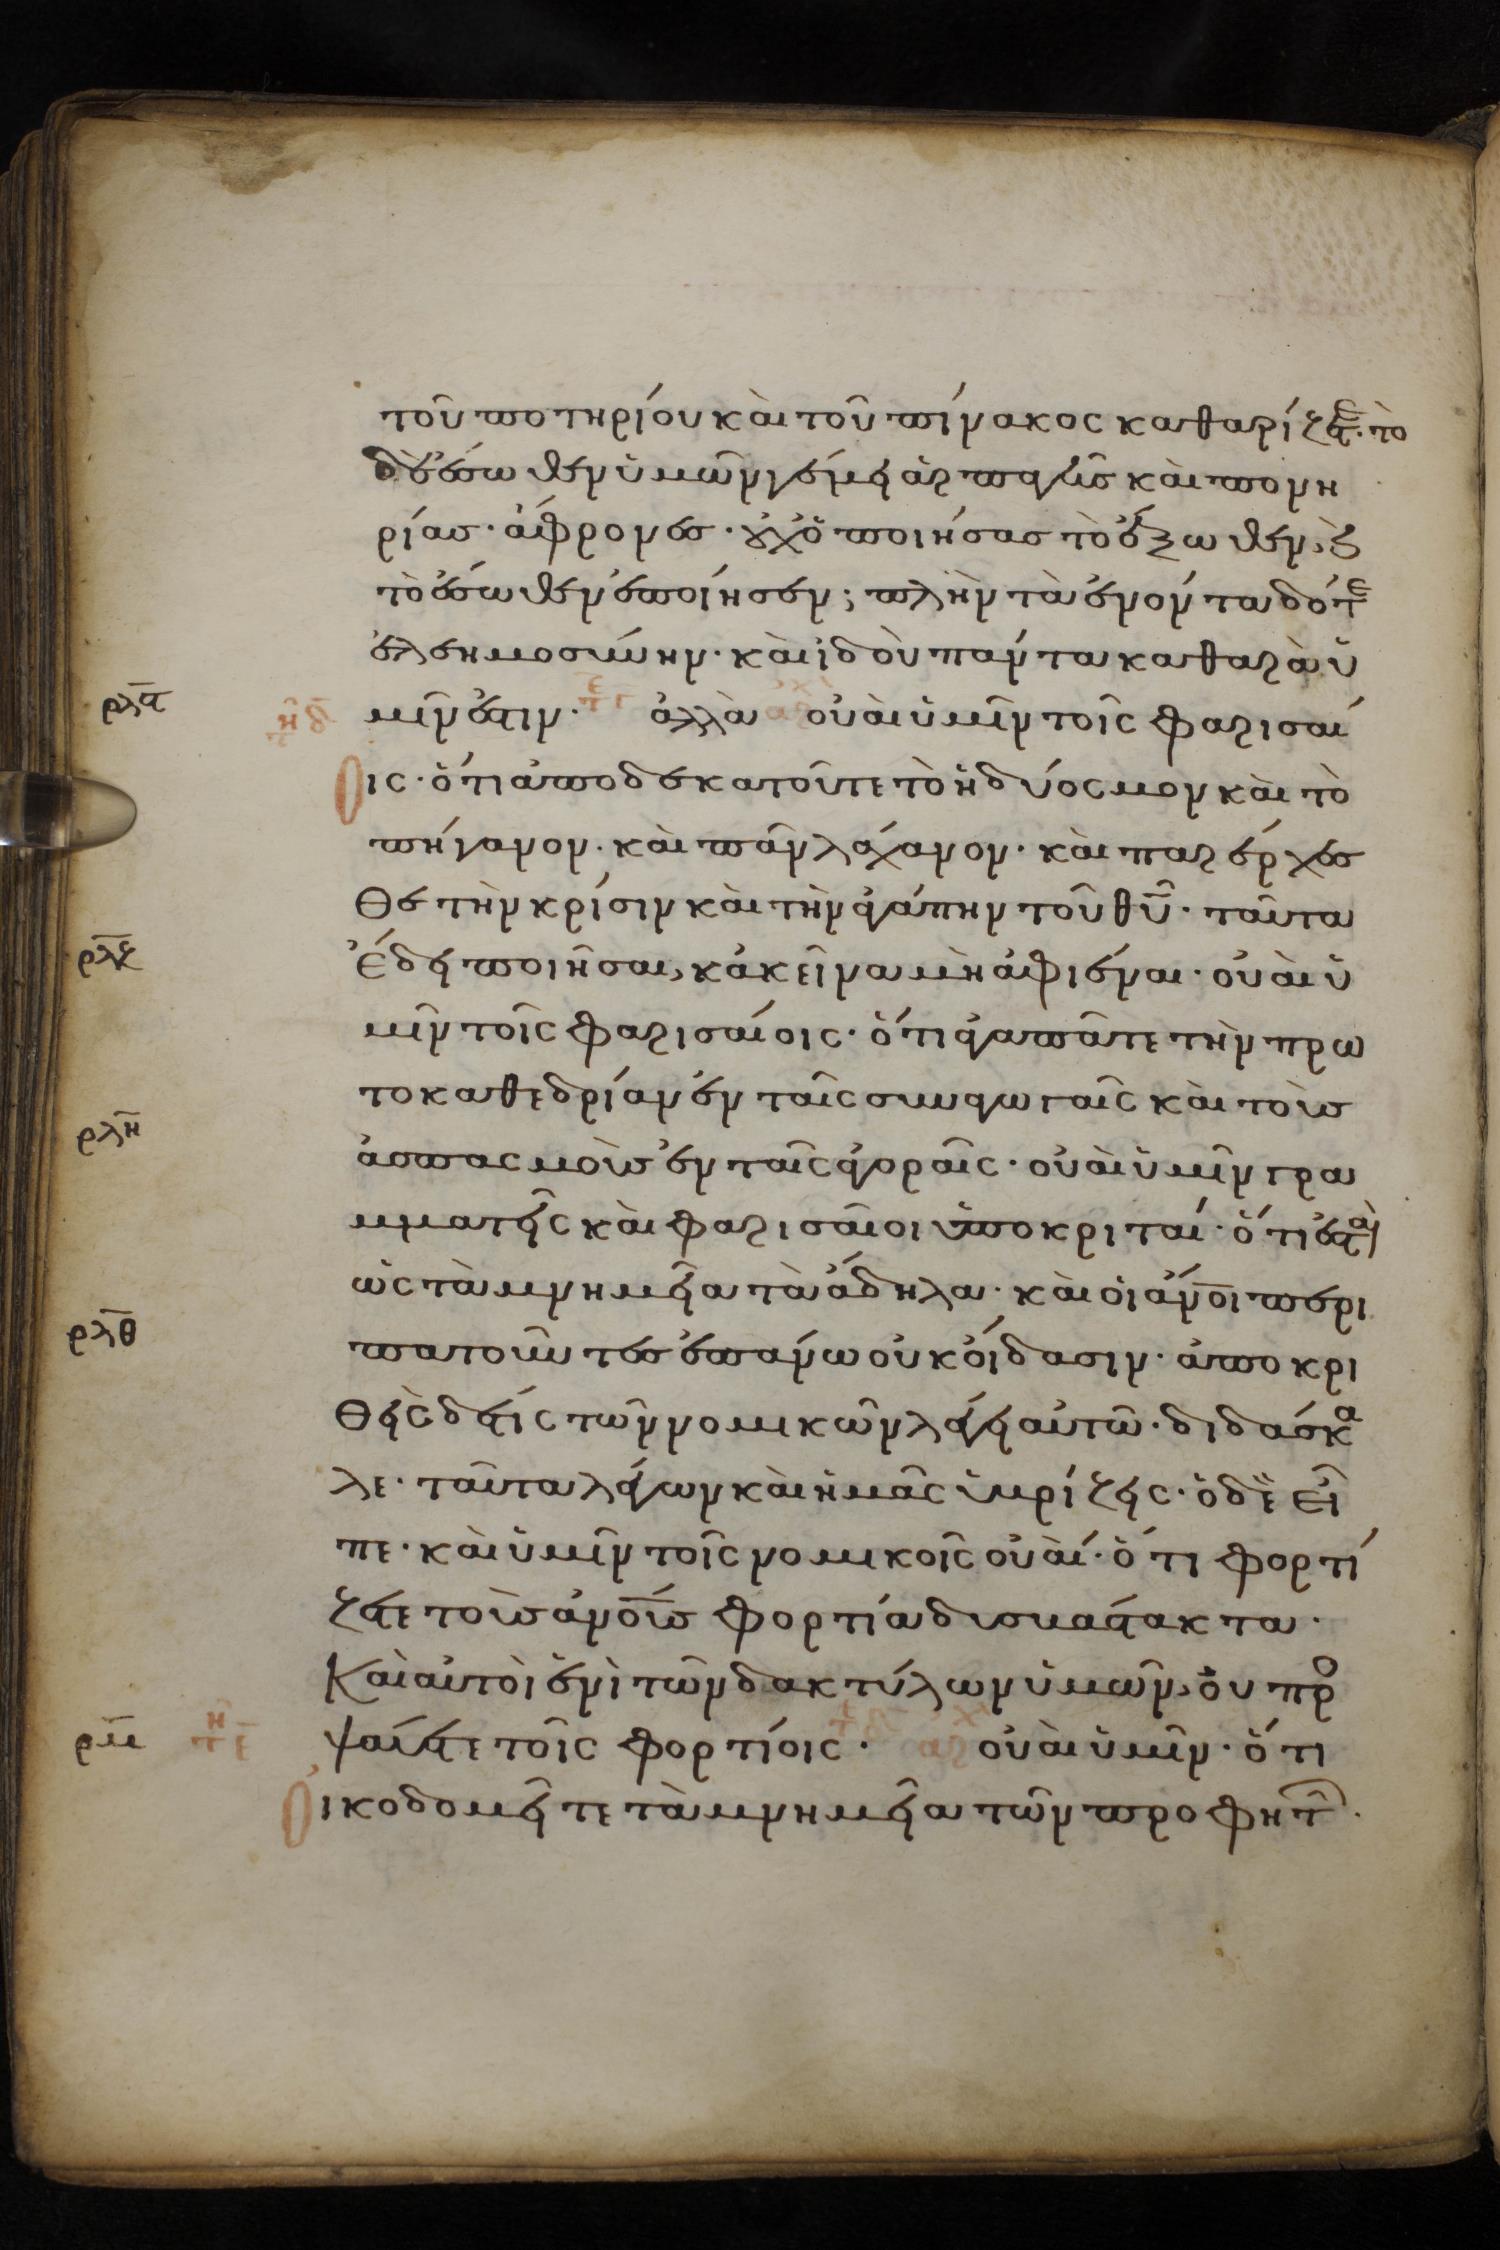 τοῦ ποτηρίου καὶ τοῦ πίνακος καθαρίζετε· τὸ
δὲ ἔσωθεν ὑμῶν γέμει ἁρπαγῆς καὶ πονη
ρίας· ἄφρονες· οὐχ ὁ ποιήσας τὸ ἔξωθεν, καὶ
τὸ ἔσωθεν ἐποίησεν; πλὴν τὰ ἐνόντα δότε
ἐλεημοσύνην· καὶ ἰδοὺ πάντα καθαρὰ ὑ
ρλϛ
μῖν ἐστιν· ἀλλὰ οὐαὶ ὑμῖν τοῖς φαρισαί
οις· ὅτι ἀποδεκατοῦτε τὸ ἡδύοσμον καὶ τὸ
πήγανον· καὶ πᾶν λάχανον· καὶ παρέρχεσ
θε τὴν κρίσιν καὶ τὴν ἀγάπην τοῦ θυ· ταῦτα
ρλζ
ἔδει ποιῆσαι, κἀκεῖνα μὴ ἀφιέναι· οὐαὶ ὑ
μῖν τοῖς φαρισαίοις· ὅτι ἀγαπᾶτε τὴν πρω
τοκαθεδρίαν ἐν ταῖς συναγωγαῖς καὶ τοὺς
ρλη
ἀσπασμοὺς ἐν ταῖς ἀγοραῖς· οὐαὶ ὑμῖν γρα
μματεῖς καὶ φαρισαῖοι ὑποκριταί· ὅτι ἐστὲ
ὡς τὰ μνημεῖα τὰ ἄδηλα· καὶ οἱ ανοι περι
ρλθ
πατοῦντες ἐπάνω οὐκ οἴδασιν· ἀποκρι
θεὶς δέ τις τῶν νομικῶν λέγει αὐτῶ· διδάσκα
λε· ταῦτα λέγων καὶ ἡμᾶς ὑβρίζεις· ὁ δὲ εἶ
πε· καὶ ὑμῖν τοῖς νομικοῖς οὐαί· ὅτι φορτί
ζετε τοὺς ανους φορτία δυσβάστακτα·
Καὶ αὐτοὶ ἑνὶ τῶν δακτύλων ὑμῶν, οὐ προ
ρμ
ψαύετε τοῖς φορτίοις· οὐαὶ ὑμῖν· ὅτι
οἰκοδομεῖτε τὰ μνημεῖα τῶν προφητῶν·